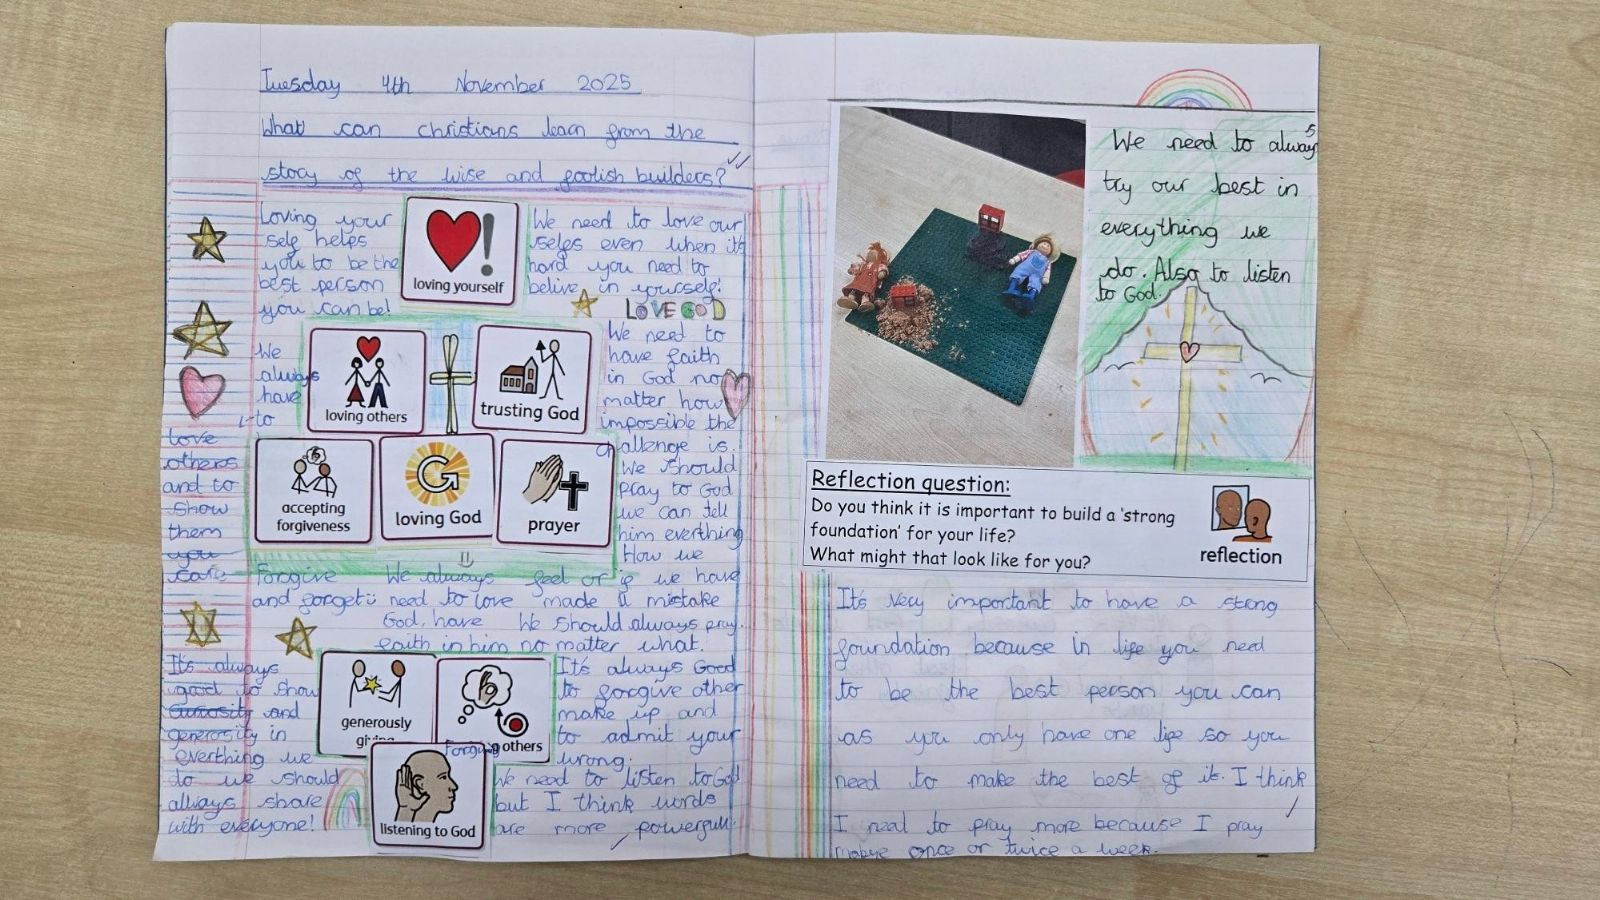 Tuesday 4th November 2025
What can christians learn from the
story of the wise and foolish builders?
Loving your
self helps
you to be the
best person
you can be!
loving yourself
We need to love our
selfes even when it's
hard you need to
belive in yourself!
LOVE GOD
We
always
have
to
love
others
and to
show
them
you
care
loving others
trusting God
We need to
have faith
in God no
matter how
impossible the
challenge is.
accepting
forgiveness
loving God
prayer
We should
pray to God
we can tell
him everthing
How we
feel or if we have
made a mistake
We should always pray.
Forgive
and forget
We always
need to love
God, have
faith in him no matter what.
It's always
good to show
curiosity and
generosity in
everthing we
do we should
always share
with everyone!
generously
giving
Forgiving others
It's always Good
to forgive other
make up and
to admit your
wrong.
listening to God
We need to listen to God
but I think words
are more powerful!
We need to always
try our best in
everything we
do. Also to listen
to God.
5
Reflection question:
Do you think it is important to build a 'strong
foundation' for your life?
What might that look like for you?
reflection
It's very important to have a strong
foundation because in life you need
to be the best person you can
as you only have one life so you
need to make the best of it. I think
I need to pray more because I pray
mabye once or twice a week.